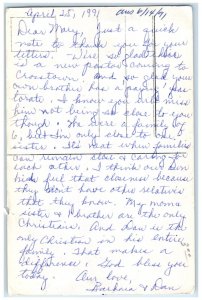 April 25, 1991 ans 6/14/91
Dear Mary, Just a quick
note to thank you for your
letters. We're so glad there
is a new pastor coming to
Crosstown and so glad your
own brother has a paying pas-
torate. I know you will miss
him not being so close to you
though. He were a friend to
a but only close to one
sister. It's neat when families
can remain close & caring for
each other. I think our own
kids feel that closeness because
they don't have other relatives
that they know. My mom's
sister & brother are the only
Christians. And Dan is the
only Christian on his entire
family. That makes a
difference. God bless you
today. Our love,
Barbara & Dan